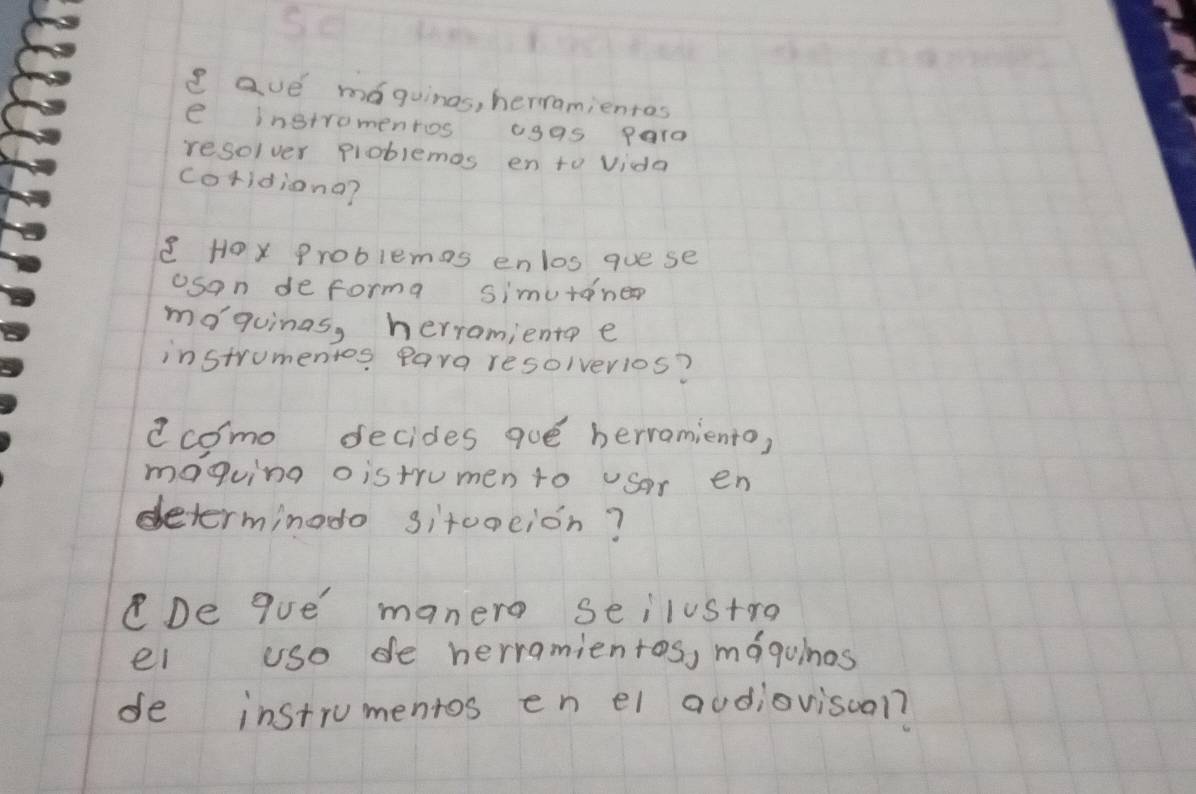 ¿ Qué máquinas, herramientas
e instrumentos usas para
resolver problemas en tu vida
cotidiana?
¿ Hay problemas en los que se
usan de forma simutánea
máquinas, herramienta e
instrumentos para resolverlos?
¿cómo decides qué herramienta,
máquina o istrumento usar en
determinado situación?
¿De qué manera se ilustra
el uso de herramientas, máquinas
de instrumentos en el audiovisual?